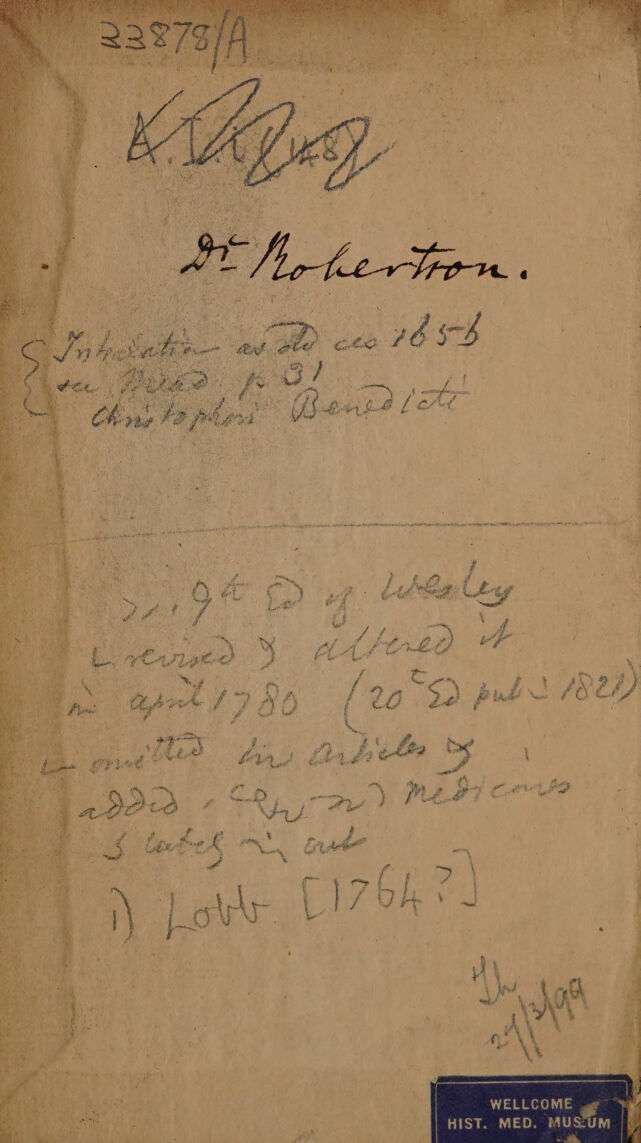 33878/A
Dr Robertson.
Inhalation as old as 1656
see Mead p 31
Christophori Benedicti
9th Ed of Wesley
revised & altered it
in april 1780 (20th Ed pub 1821)
omitted articles &
added medicines
out
1) Lobb [1764?]
27/3/99
WELLCOME
HIST. MED. MUSEUM